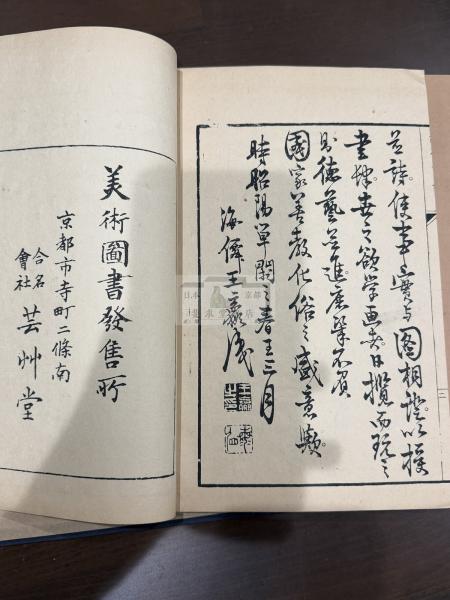 使事實与圖相證以授
書肆世之欲学画者日攬而玩之
則徳藝並進庶幾不負
國家善教化俗之盛意歟
時昭陽單閼之春王三月
海僊王羸識
美術圖書發售所
京都市寺町二條南
合名會社 芸艸堂